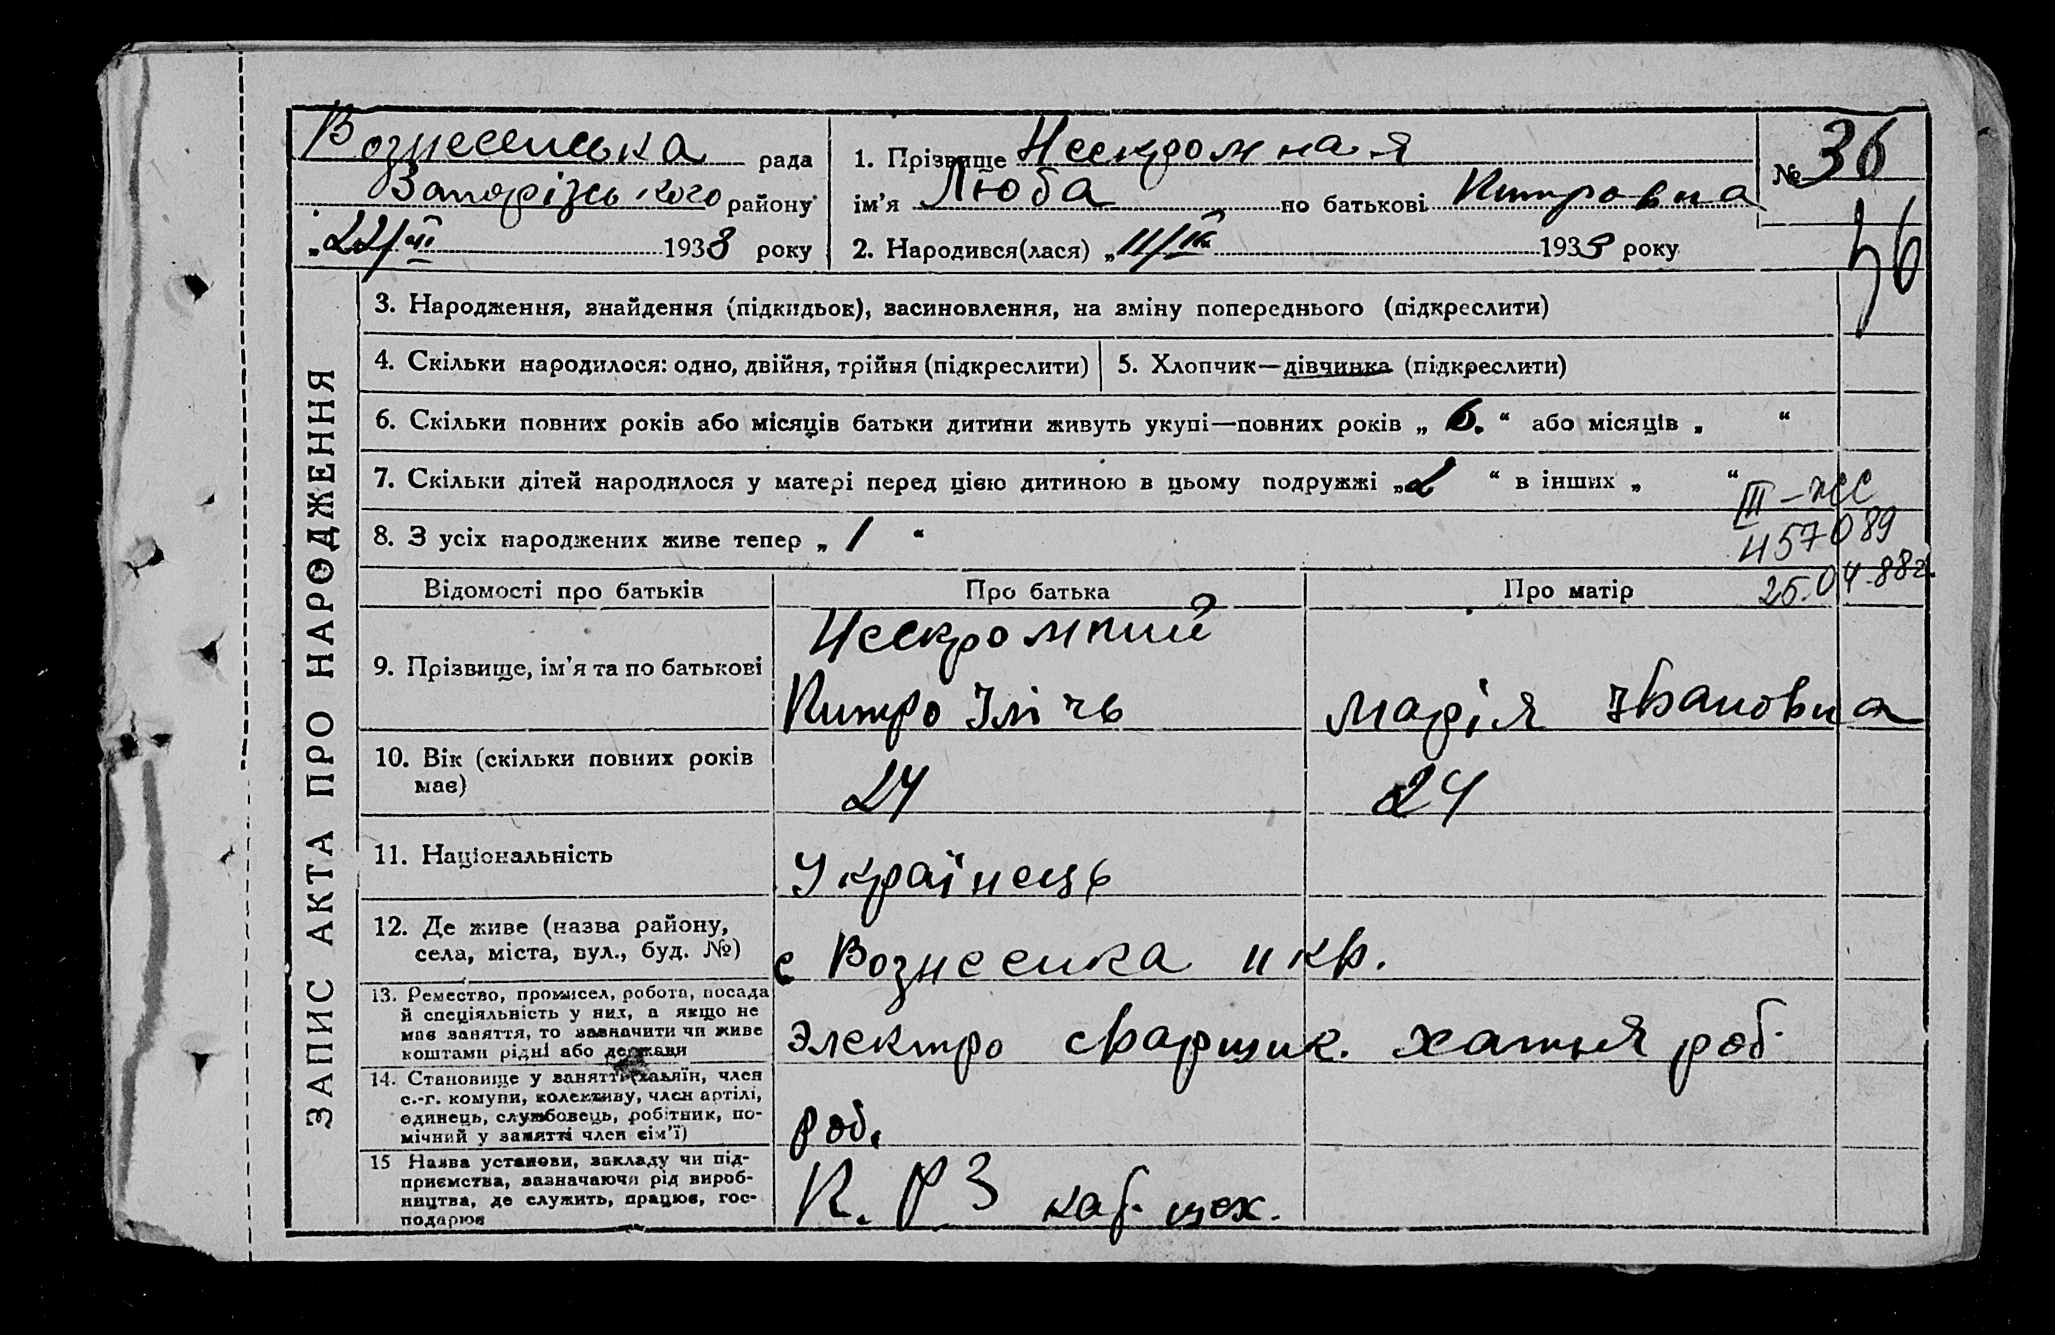 Вознесенська рада
Запорізького району
„22/VI 1938 року
1. Прізвище Нескромная
ім'я Люба по батькові Питровна
2. Народився(лася) „11/IV 1938 року
№ 36
36
ЗАПИС АКТА ПРО НАРОДЖЕННЯ
3. Народження, знайдення (підкидьок), васиновлення, на зміну попереднього (підкреслити)
4. Скільки народилося: одно, двійня, трійня (підкреслити)
5. Хлопчик—дівчинка (підкреслити)
6. Скільки повних років або місяців батьки дитини живуть укупі—повних років „ 6. “ або місяців „ “
7. Скільки дітей народилося у матері перед цією дитиною в цьому подружжі „2 “ в інших „ “
8. З усіх народжених живе тепер „ 1 “
III-ЖС
457089
25.04.88г.
Відомості про батьків
Про батька
Про матір
9. Прізвище, ім'я та по батькові
Нескромний
Питро Іліч
Марія Івановна
10. Вік (скільки повних років
має)
24
24
11. Національність
Українець
12. Де живе (назва району,
села, міста, вул., буд. №)
с Вознесенка 11 кв.
13. Ремество, промисел, робота, посада
й спеціяльність у них, а якщо не
має заняття, то зазначити чи живе
коштами рідні або держави
Электро сварщик.
хатня роб.
14. Становище у занятті (хазяїн, член
с.-г. комуни, колективу, член артілі,
одинець, службовець, робітник, по-
мічний у занятті член сім'ї)
роб.
15 Назва установи, закладу чи під-
приємства, зазначаючи рід вироб-
ництва, де служить, працює, гос-
подарює
П. Р З цех.